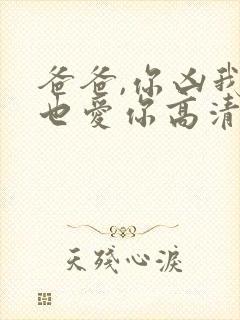 爸爸,你凶我
也爱你高清
天残心淚